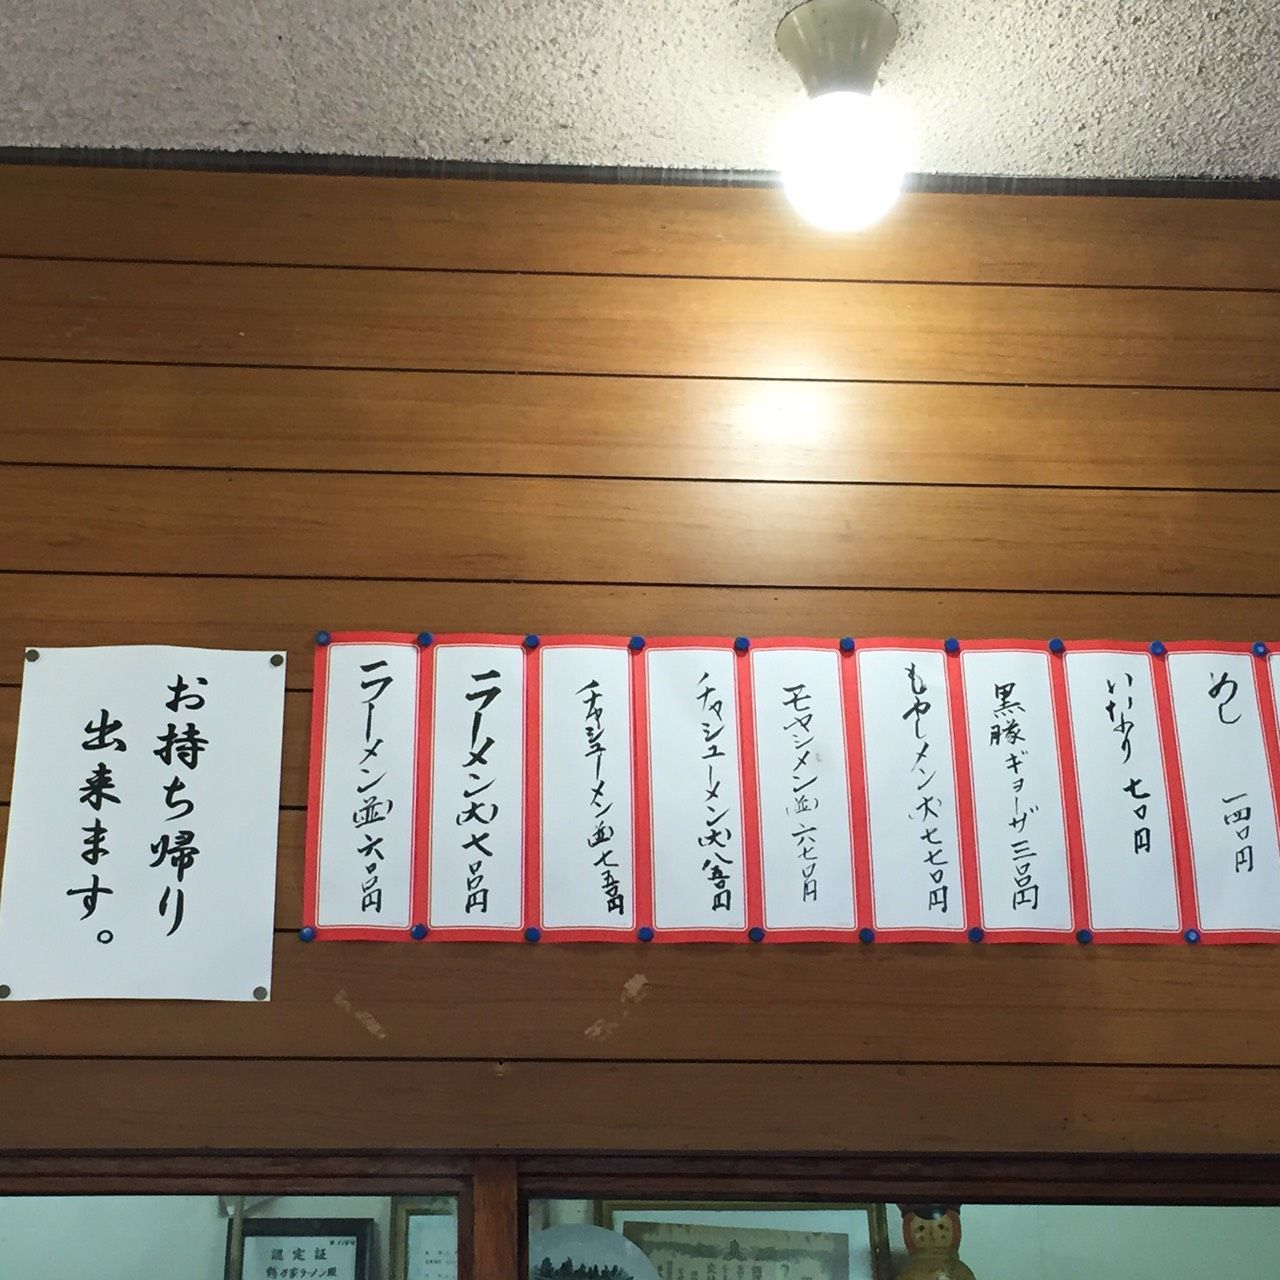 お持ち帰り
出来ます。
ラーメン(並)六〇〇円
ラーメン(大)七〇〇円
チャシューメン(並)七五〇円
チャシューメン(大)八五〇円
モヤシメン(並)六七〇円
もやしメン(大)七七〇円
黒豚ギョーザ三〇〇円
いなり七〇円
めし一四〇円
認定証